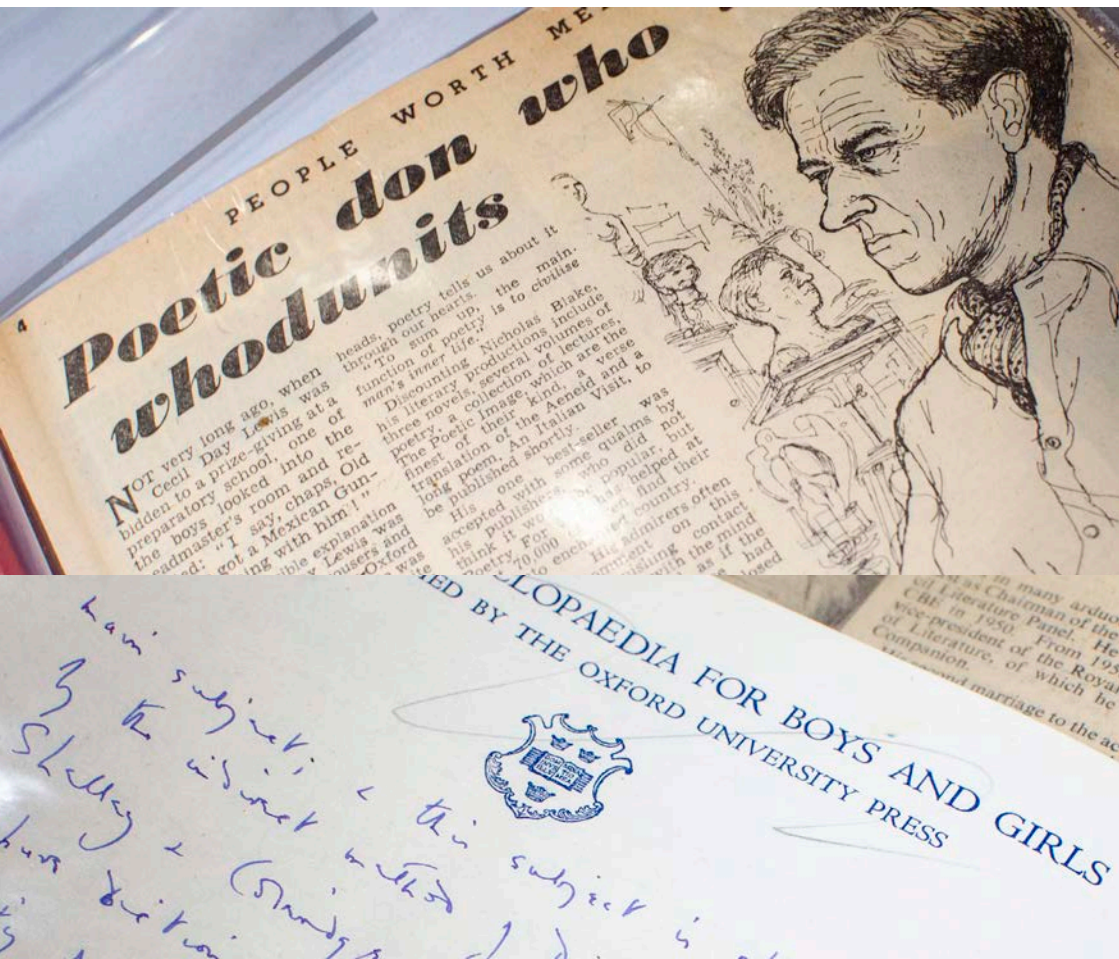 PEOPLE WORTH ME
4
Poetic don who
whodunits
NOT very long ago, when
Cecil Day Lewis was
bidden to a prize-giving at a
preparatory school, one of
the boys looked into the
eadmaster's room and re-
ed: "I say, chaps, Old
got a Mexican Gun-
ing with him!"
ible explanation
y Lewis was
ousers and
Oxford
was
heads, poetry tells us about it
through our hearts.
"To sum up, the main
function of poetry is to civilise
man's inner life."
Discounting Nicholas Blake,
his literary productions include
three novels, several volumes of
poetry, a collection of lectures,
The Poetic Image, which are the
finest of their kind, a verse
translation of the Aeneid and a
long poem, An Italian Visit, to
be published shortly.
His one best-seller was
accepted with some qualms by
his publishers, who did not
think it would be popular, but
70,000
has helped at
find their
country.
His admirers often
on this
contact
with the mind
as if the
had
CLOPAEDIA FOR BOYS AND GIRLS
ED BY THE OXFORD UNIVERSITY PRESS
main subject; & this subject is
by the indirect method
Shelley &
have
in many arduo
ed as Chairman of the
ed Literature Panel. He
CBE in 1950. From 195
vice-president of the Royal
of Literature, of which he
Companion.
marriage to the ac